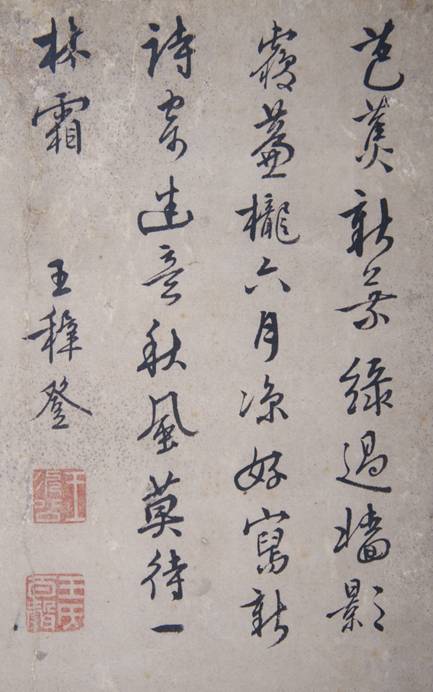 芭蕉新葉綠過墻影
覆簾櫳六月涼好寫新
詩寄遠音秋風莫待一
林霜
王穉登
王氏百穀